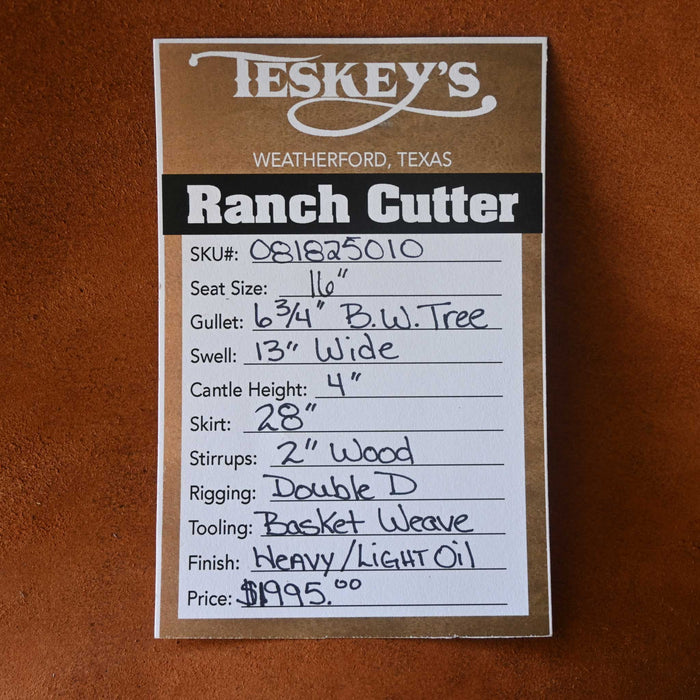 TESKEY'S
WEATHERFORD, TEXAS
Ranch Cutter
SKU#: 081825010
Seat Size: 16"
Gullet: 6 3/4" B.W. Tree
Swell: 13" Wide
Cantle Height: 4"
Skirt: 28"
Stirrups: 2" Wood
Rigging: Double D
Tooling: Basket Weave
Finish: Heavy/Light Oil
Price: $1995.00